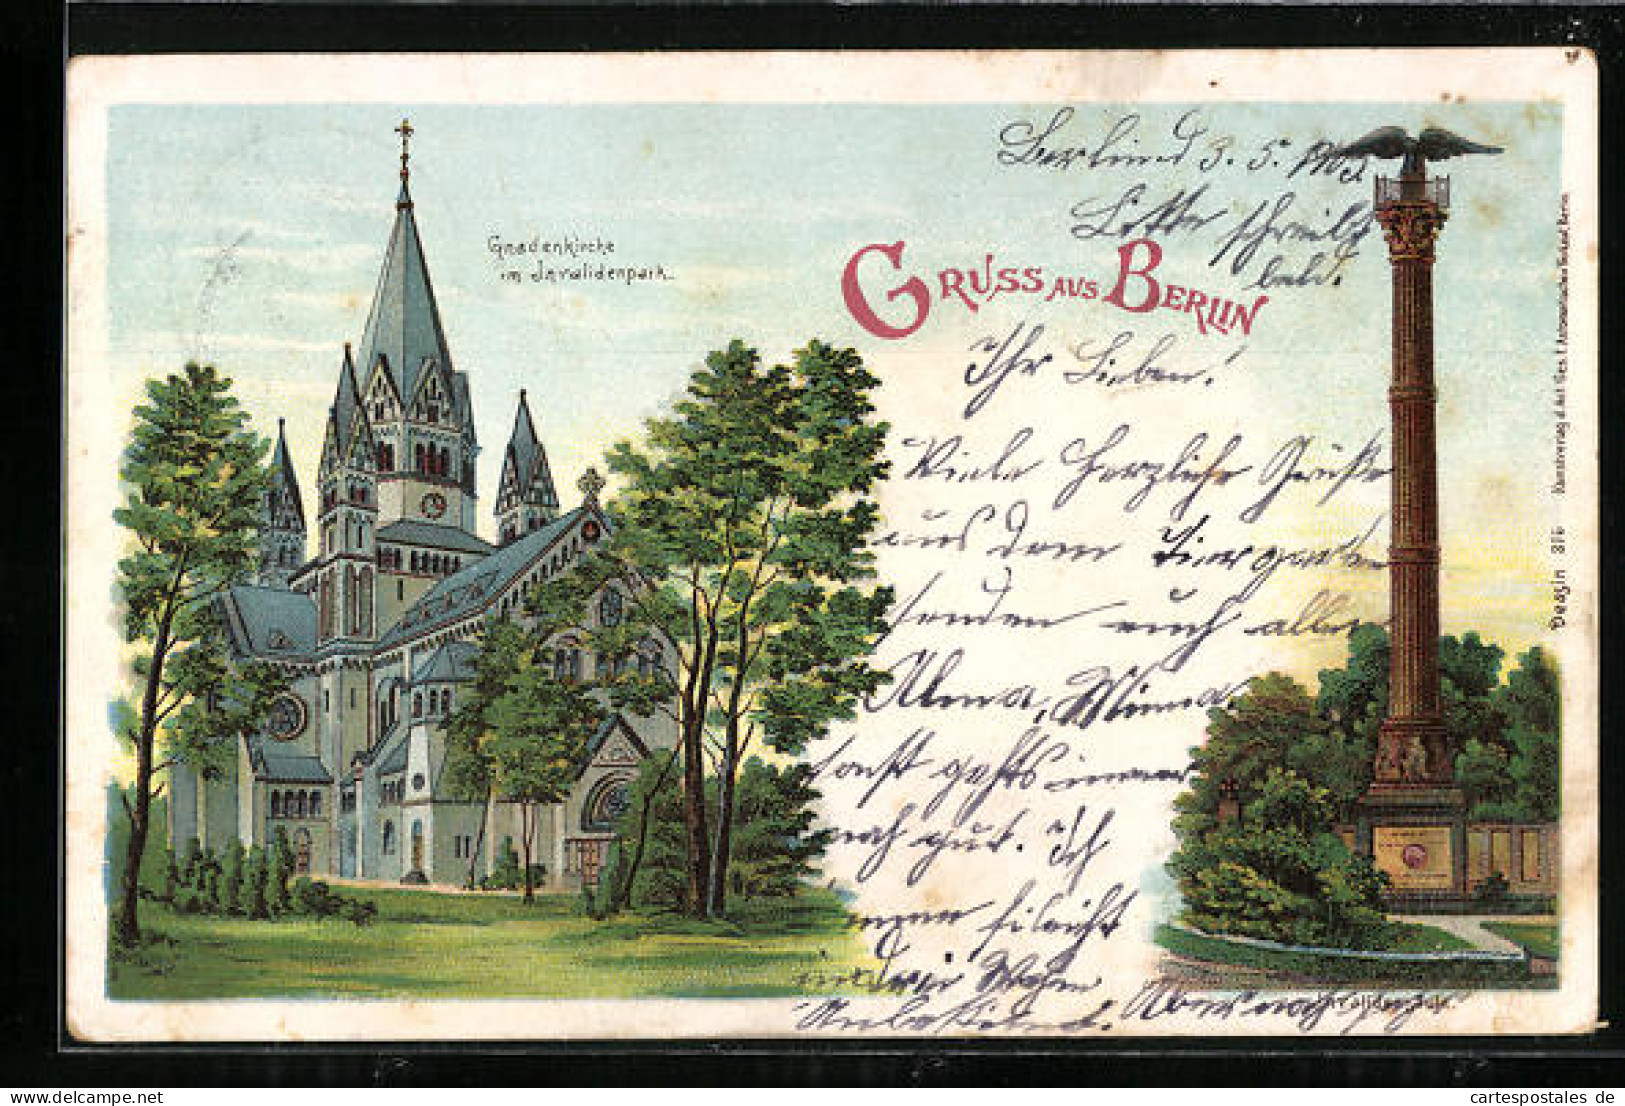 Gnadenkirche
im Invalidenpark.
GRUSS AUS BERLIN
Berlin d 3. 5. 1902
Lotte schreibt
bald.
Ihr Lieben!
Viele herzliche Grüße
aus dem Tiergarten
senden euch allen
Alma, Minna.
sonst gehts immer
noch gut. Ich
in drei Wochen
Aber noch
Invalidensäule.
Desjn 316
Kunstverlag d. Act. Ges. f. Automatischen Verkauf, Berlin.
cartespostales de